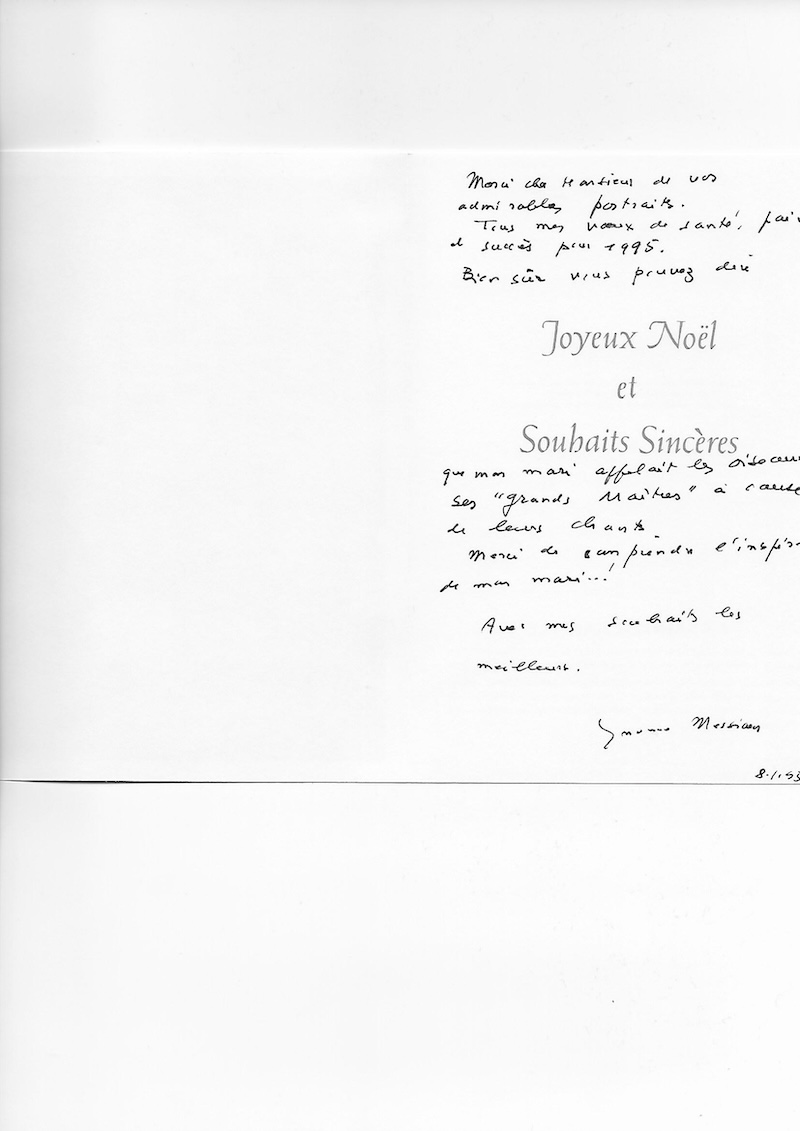 Merci cher Monsieur de vos
admirables portraits.
Tous mes vœux de santé, paix
et succès pour 1995.
Bien sûr vous pouvez dire
Joyeux Noël
et
Souhaits Sincères
que mon mari appelait les oiseaux
ses "grands Maîtres" à cause
de leurs chants.
Merci de comprendre l'inspir
de mon mari...!
Avec mes souhaits les
meilleurs.
Yvonne Messiaen
8.1.95